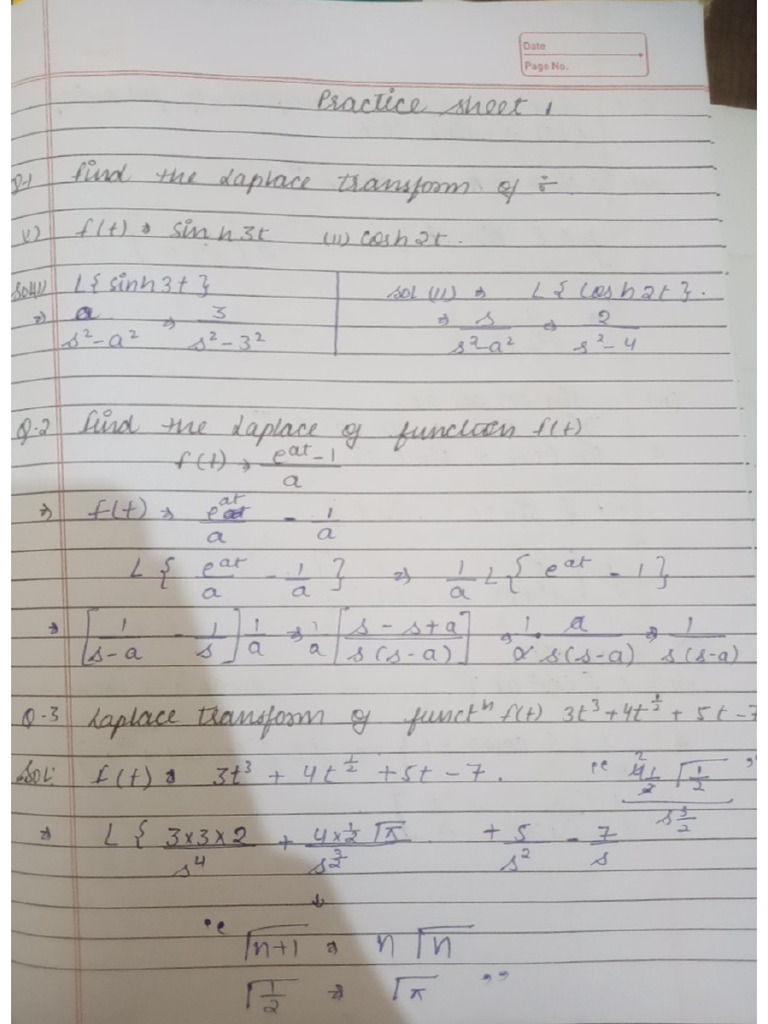 Date
Page No.
Practice sheet 1
Q-1 find the Laplace transform of ÷
(i) f(t) ⇒ sinh3t (ii) cosh2t.
Sol(i) L{sinh3t}
⇒ a/(s²-a²) ⇒ 3/(s²-3²)
Sol (ii) ⇒ L{cosh2t}.
⇒ s/(s²-a²) ⇒ 2/(s²-4)
Q.2 find the Laplace of function f(t)
f(t) ⇒ (e^at-1)/a
⇒ f(t) ⇒ e^at/a - 1/a
L{e^at/a - 1/a} ⇒ 1/a L{e^at - 1}
⇒ [1/(s-a) - 1/s] 1/a ⇒ 1/a [(s-s+a)/(s(s-a))] ⇒ 1/a · a/(s(s-a)) ⇒ 1/(s(s-a))
Q-3 Laplace transform of functⁿ f(t) 3t³+4t^½ + 5t - 7
Sol: f(t) ⇒ 3t³ + 4t^½ + 5t - 7.
⇒ L{(3×3×2)/s⁴ + (4×½ √π)/s^(3/2) + 5/s² - 7/s
↓
"Γ(n+1) ⇒ n Γ(n)
Γ(1/2) ⇒ √π "